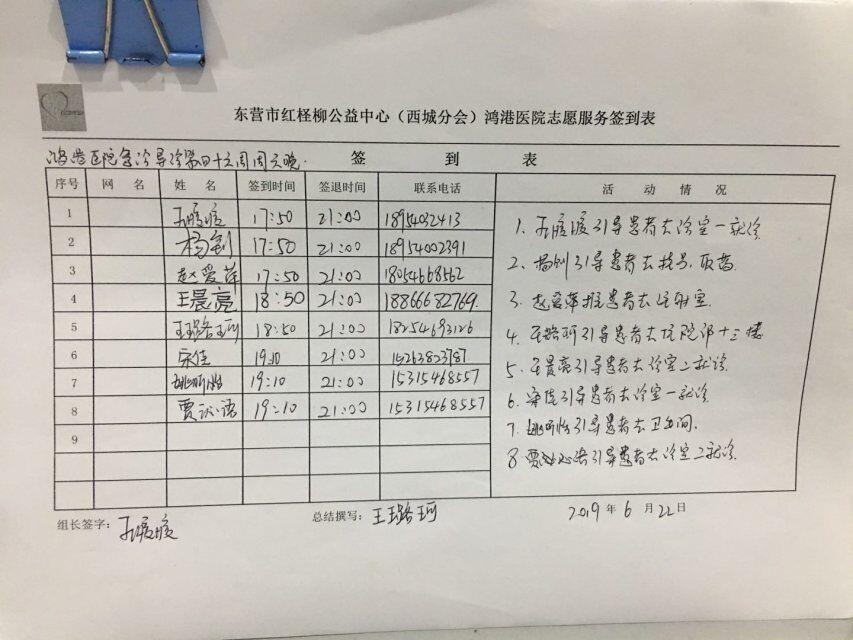 东营市红柽柳公益中心（西城分会）鸿港医院志愿服务签到表
鸿港医院急诊导诊第四十六周周六晚.
签 到 表
序号 网 名 姓 名 签到时间 签退时间 联系电话 活 动 情 况
1 17:50 21:00 18954032413
2 杨钊 17:50 21:00 18954002391
3 赵爱萍 17:50 21:00 18054668562
4 王晨亮 18:50 21:00 18866682769.
5 王璐珂 18:50 21:00 18254693126
6 宋佳 19:10 21:00 15263823787
7 19:10 21:00 15315468557
8 贾 语 19:10 21:00 15315468557
9
1. 引导患者去诊室一就诊
2、杨钊引导患者去挂号、取药.
3. 赵爱萍推患者去注射室.
4. 王璐珂引导患者去住院部十三楼
5. 王晨亮引导患者去诊室二就诊.
6. 宋佳引导患者去诊室一就诊
7. 引导患者去卫生间.
8 贾 语引导患者去诊室二就诊.
组长签字：
总结撰写：王璐珂
2019年6月22日